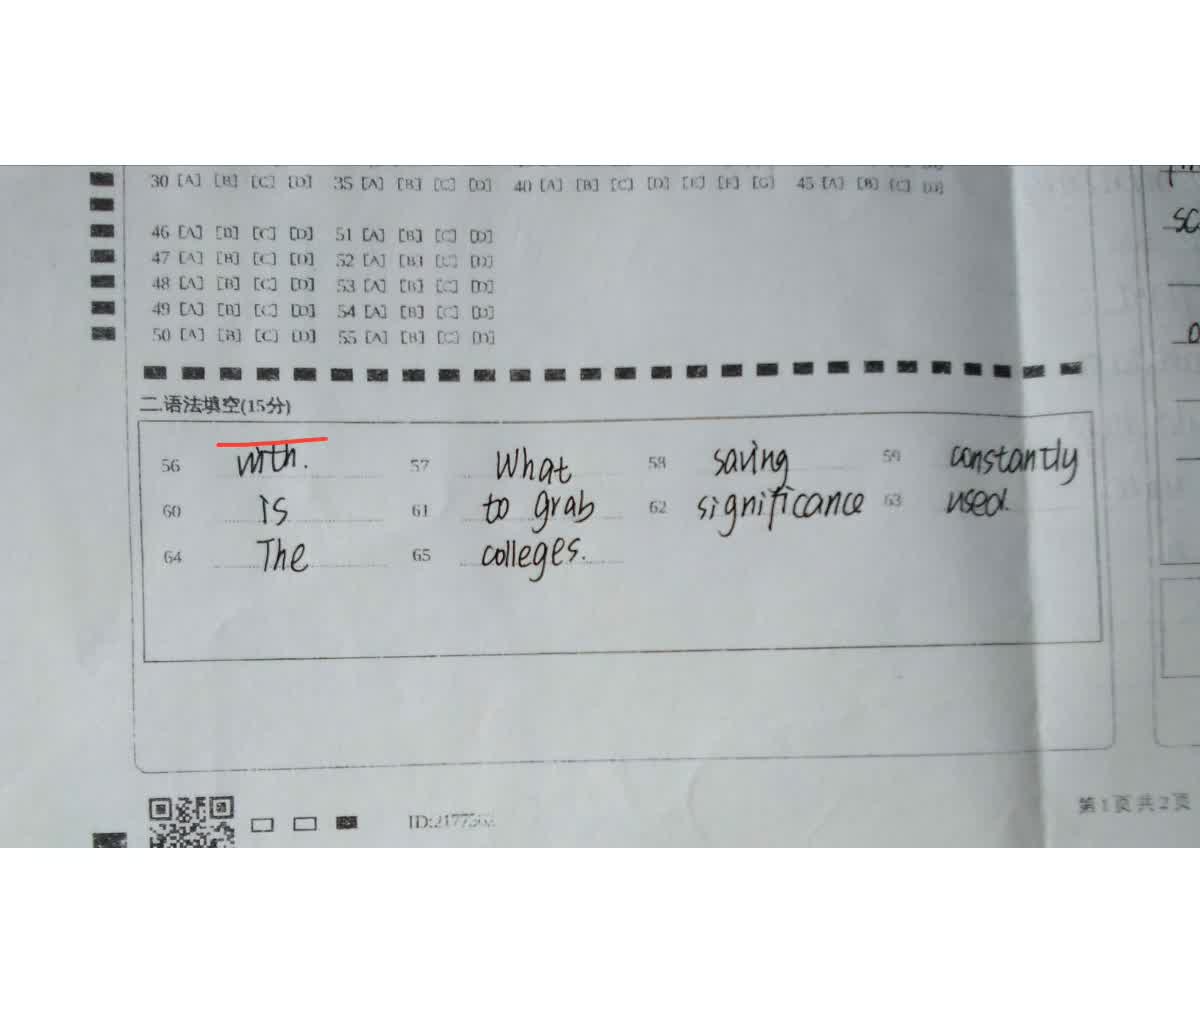 30 [A] [B] [C] [D] 35 [A] [B] [C] [D] 40 [A] [B] [C] [D] [E] [F] [G] 45 [A] [B] [C] [D]
46 [A] [B] [C] [D] 51 [A] [B] [C] [D]
47 [A] [B] [C] [D] 52 [A] [B] [C] [D]
48 [A] [B] [C] [D] 53 [A] [B] [C] [D]
49 [A] [B] [C] [D] 54 [A] [B] [C] [D]
50 [A] [B] [C] [D] 55 [A] [B] [C] [D]
二.语法填空(15分)
56 with. 57 What 58 saving 59 constantly
60 is 61 to grab 62 significance 63 used.
64 The 65 colleges.
第1页共2页